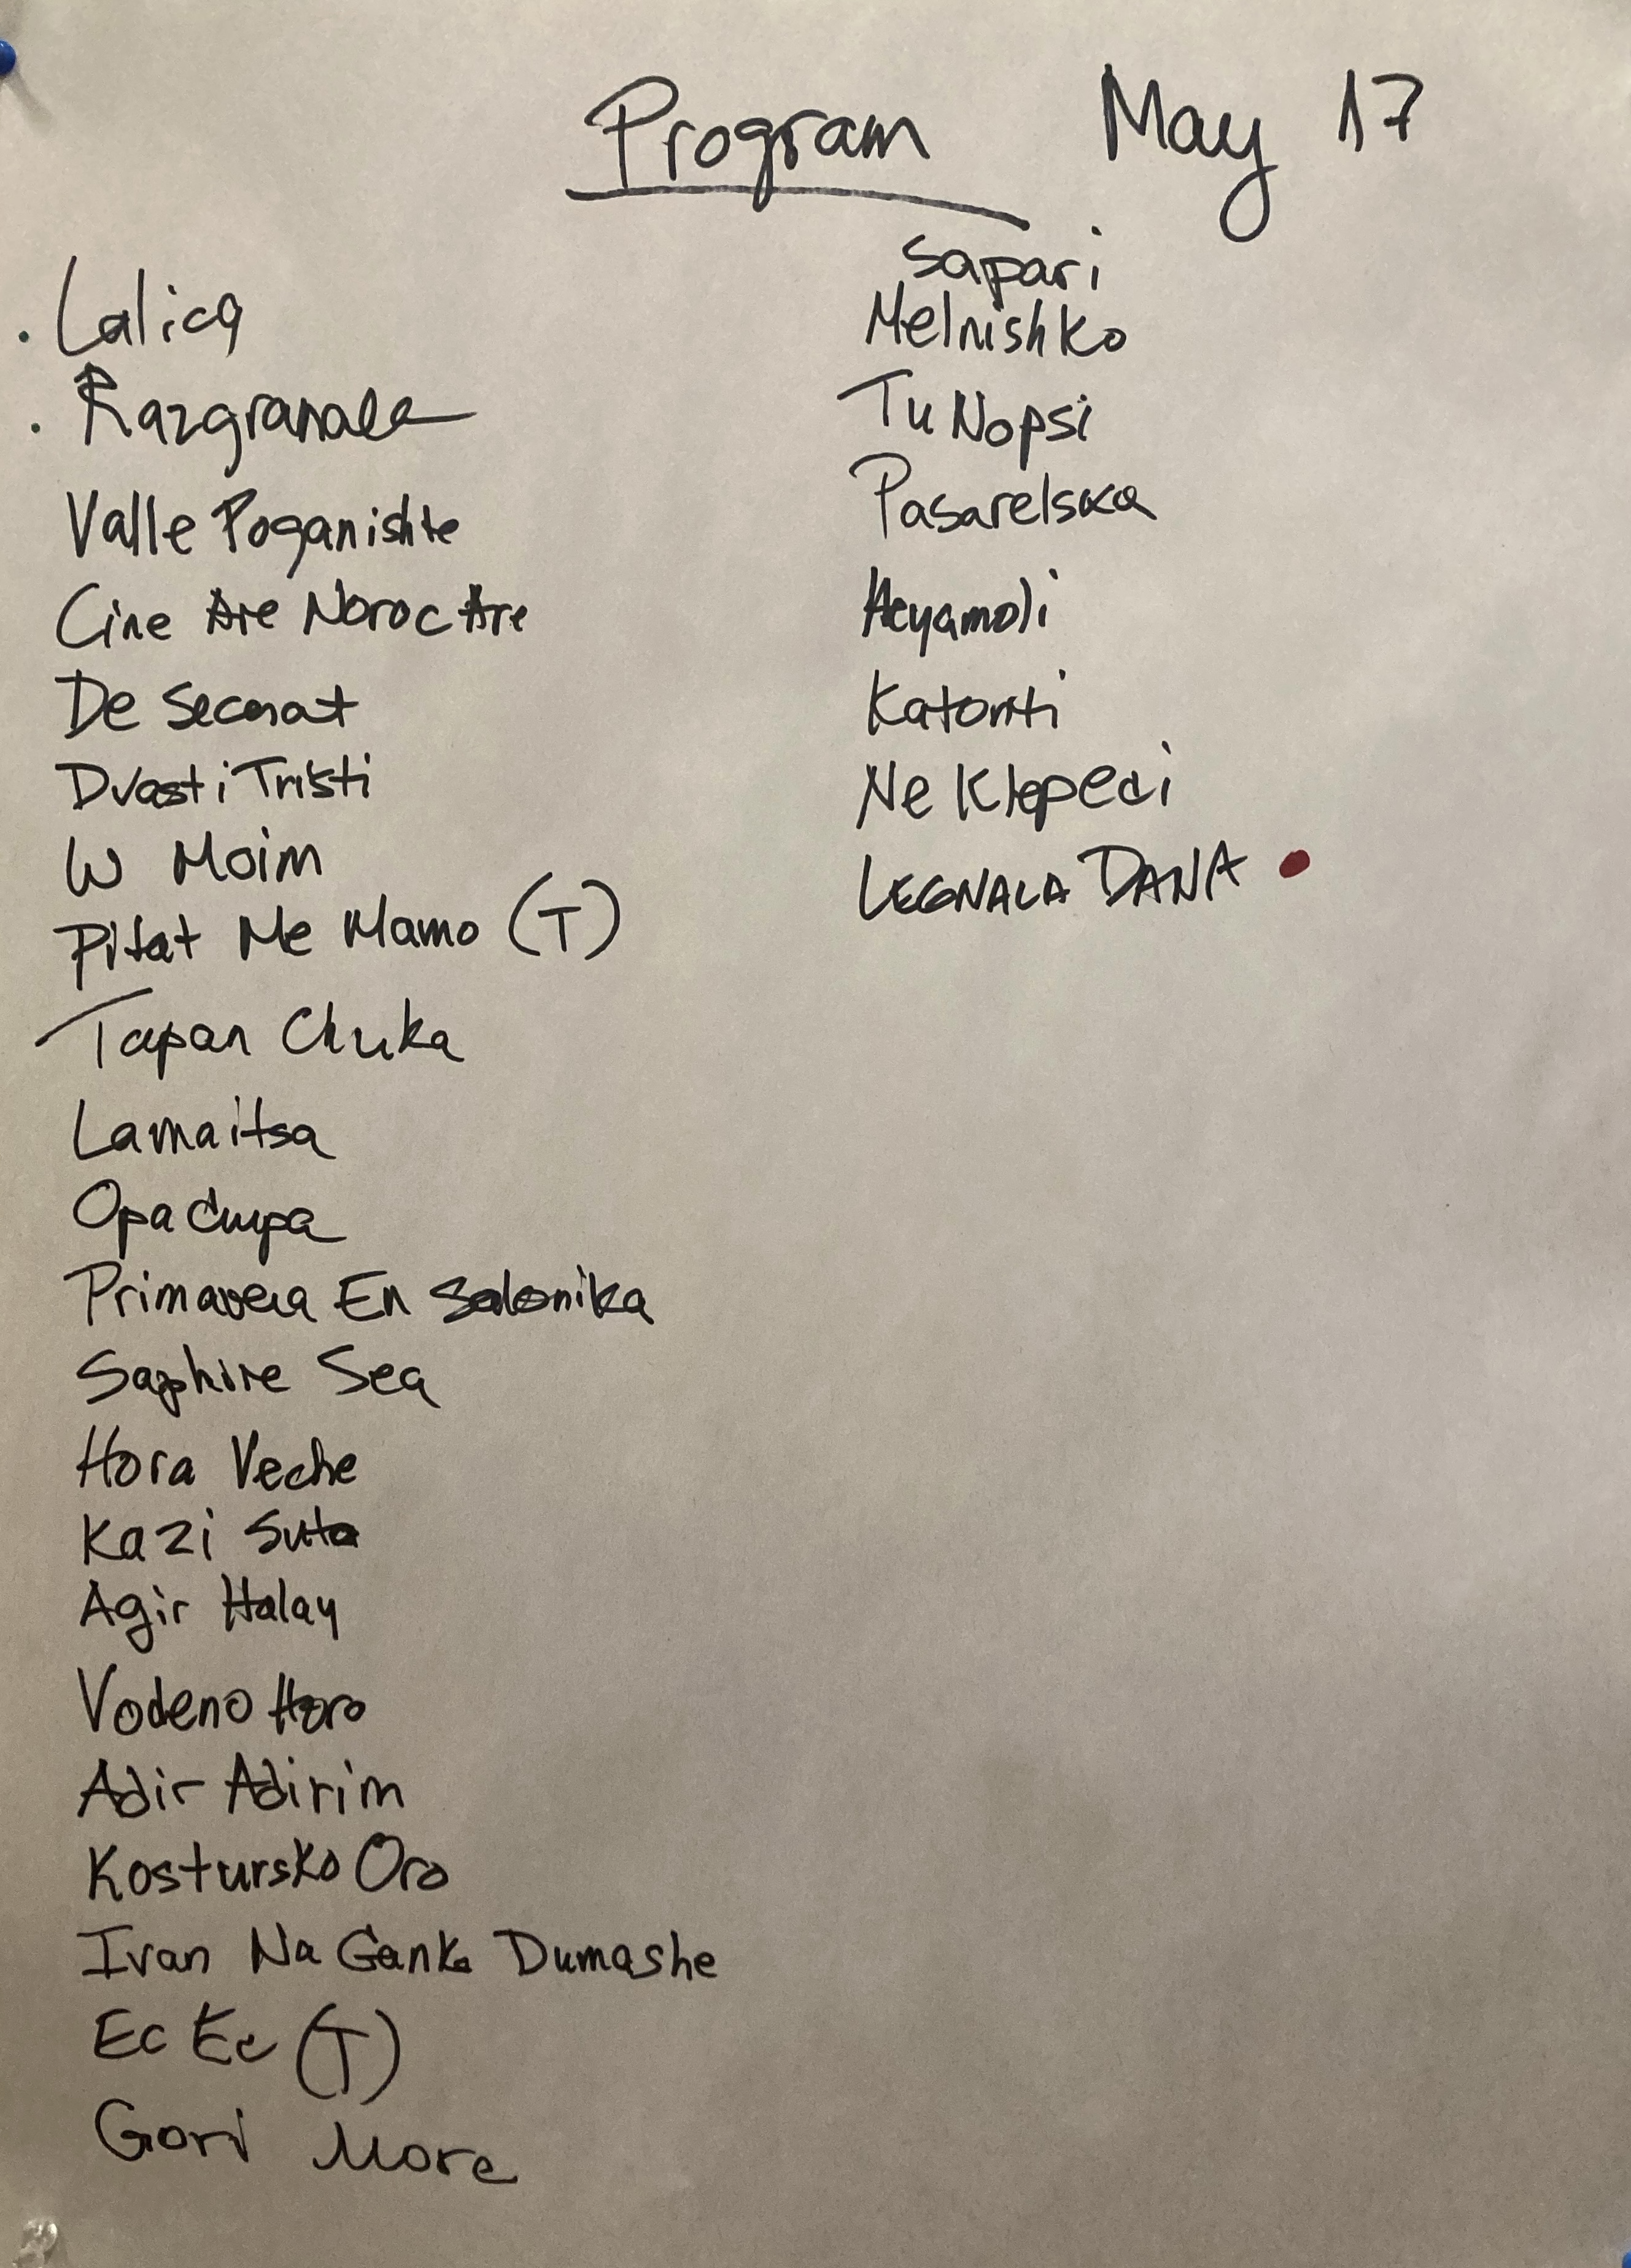 Program May 17
Lalica
Razgranala
Valle Poganishte
Cine Are Noroc Are
De Secerat
Dvasti Tristi
W Moim
Pitat Me Mamo (T)
Tapan Chuka
Lamaitsa
Opa Cupa
Primavera En Salonika
Saphire Sea
Hora Veche
Kazi Suto
Agir Halay
Vodeno Horo
Adir Adirim
Kostursko Oro
Ivan Na Ganka Dumashe
Ec Ec (T)
Gori More
Sapari
Melnishko
Tu Nopsi
Pasarelska
Heyamoli
Katonti
Ne Klepeci
LEGNALA DANA